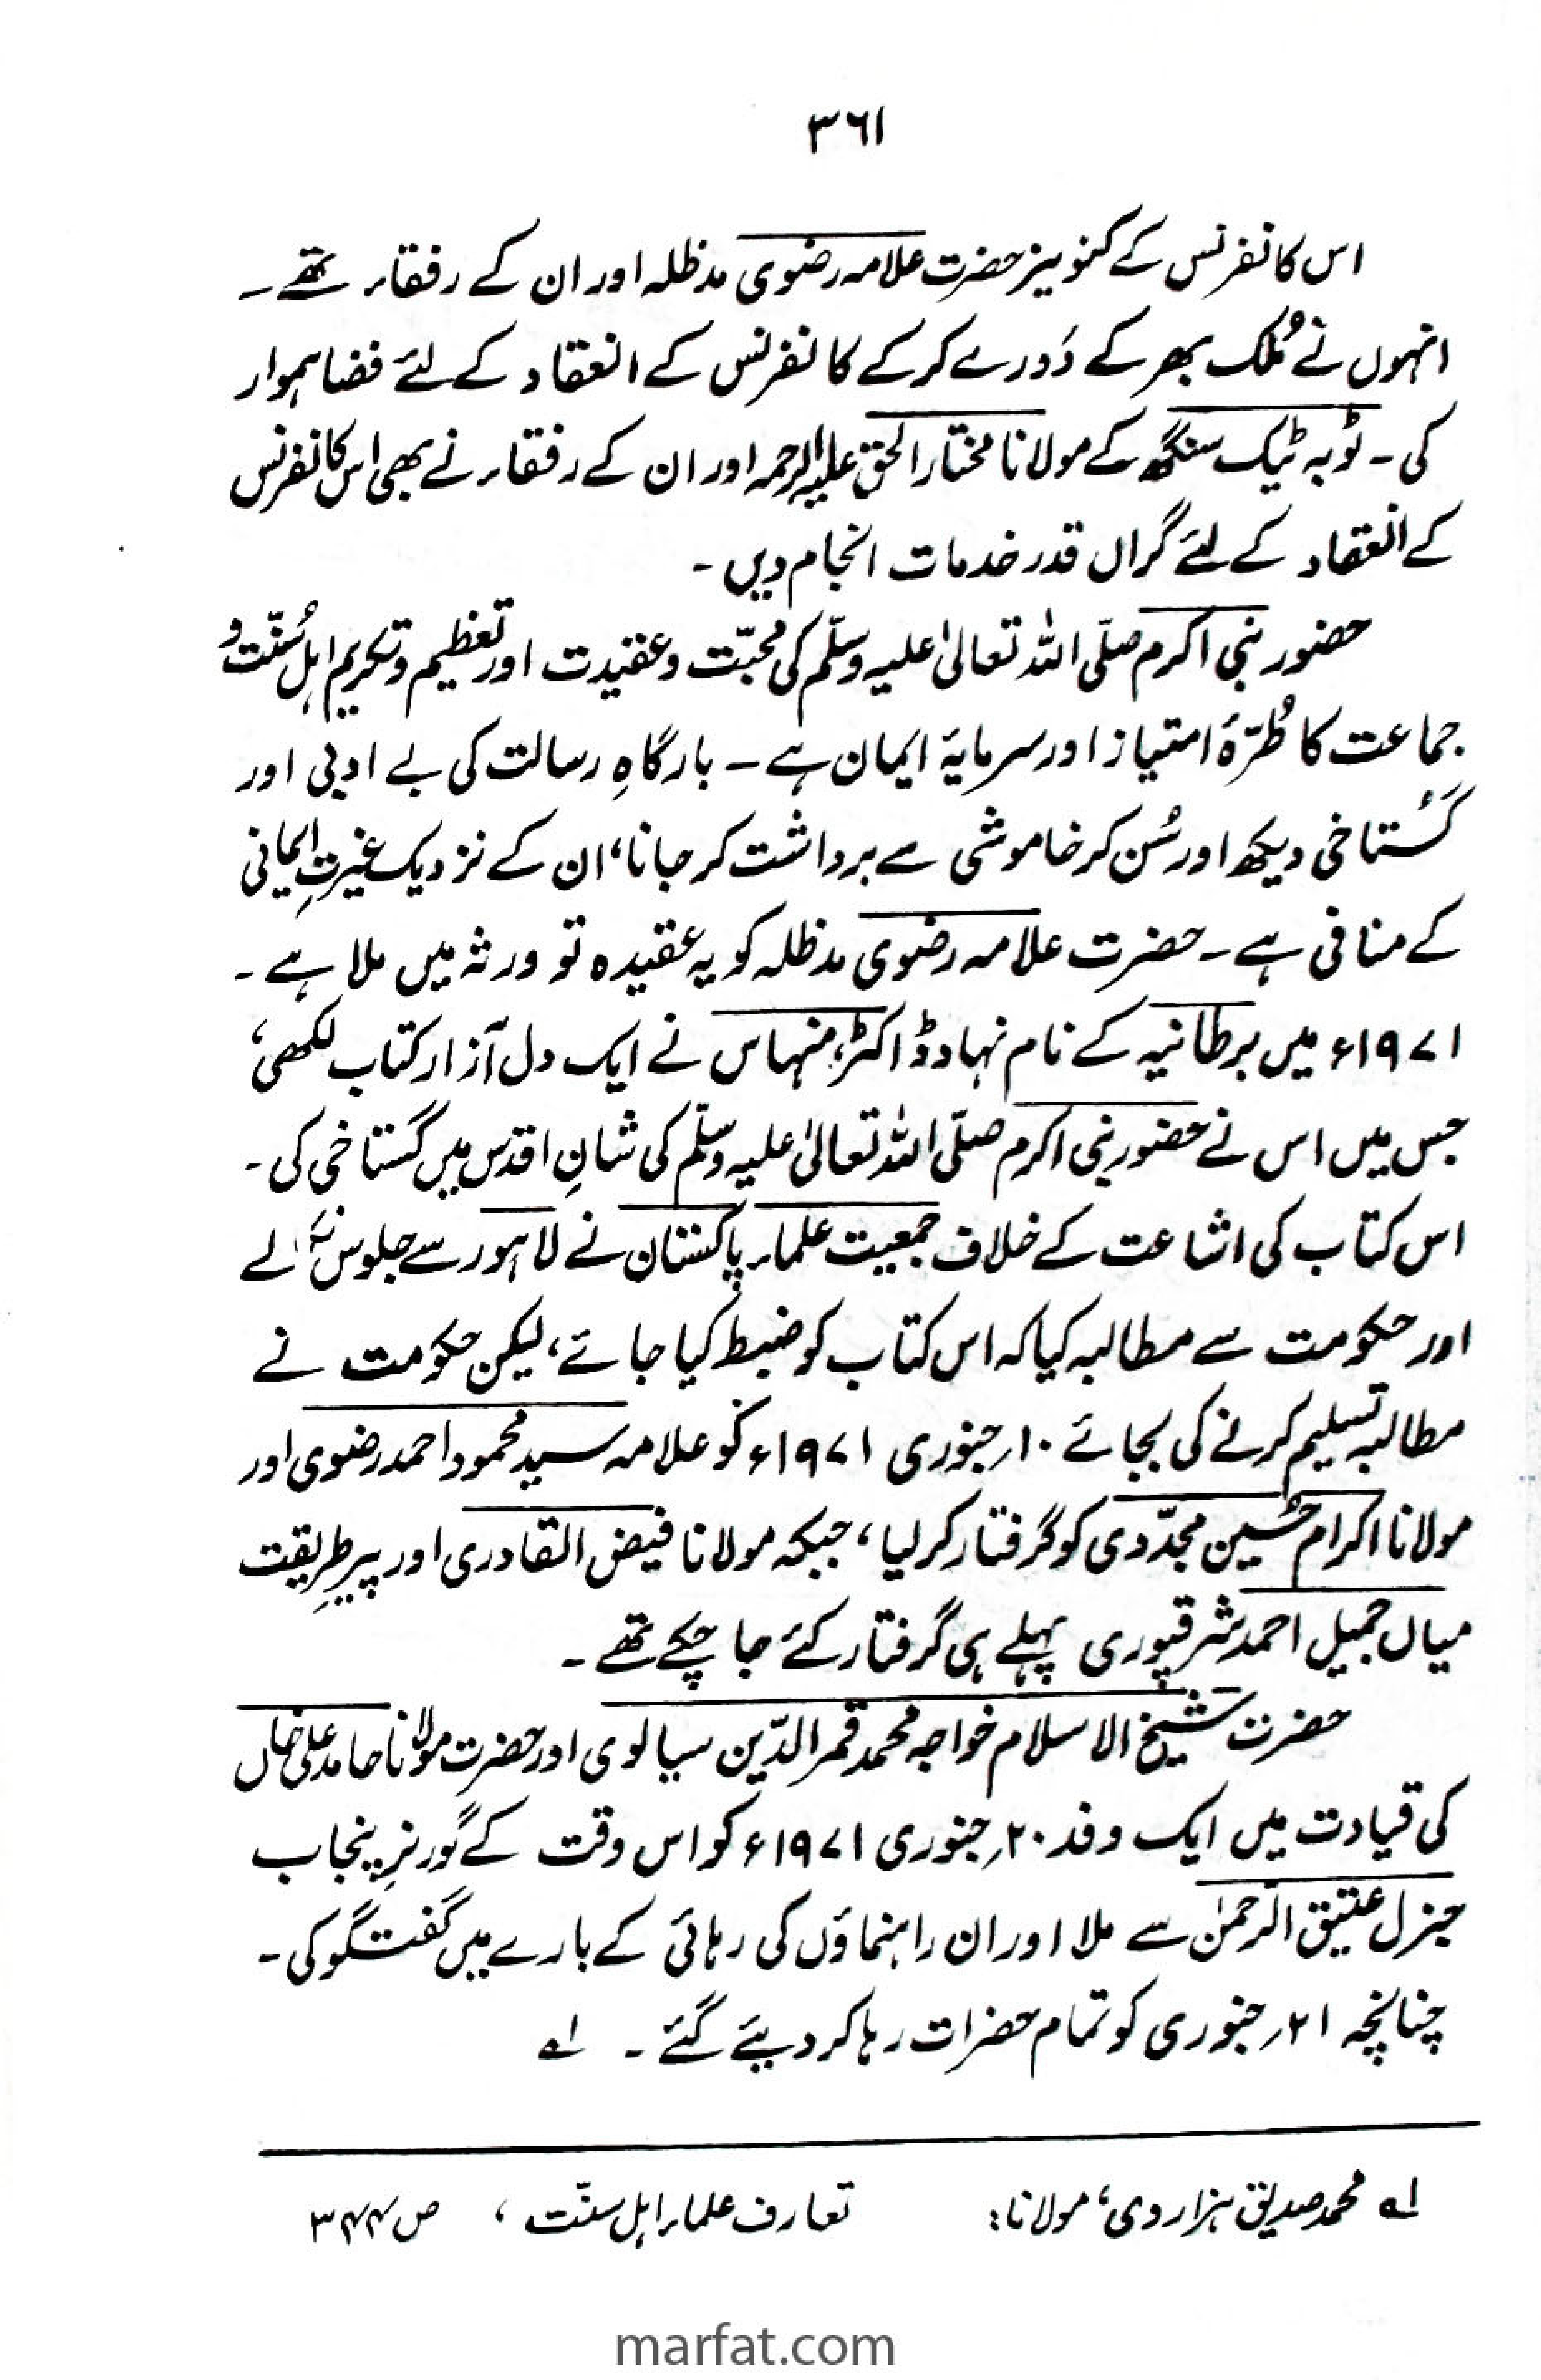 ۳۶۱
اس کانفرنس کے کنوینز حضرت علامہ رضوی مدظلہ اور ان کے رفقاء تھے۔
انہوں نے مُلک بھر کے دَورے کر کے کانفرنس کے انعقاد کے لئے فضا ہموار
کی۔ ٹوبہ ٹیک سنگھ کے مولانا مختار الحق علیہ الرحمہ اور ان کے رفقاء نے بھی اس کانفرنس
کے انعقاد کے لئے گراں قدر خدمات انجام دیں۔
حضور نبی اکرم صلّی اللہ تعالیٰ علیہ وسلّم کی محبّت و عقیدت اور تعظیم و تکریم اہلِ سُنّت و
جماعت کا طُرّۂ امتیاز اور سرمایۂ ایمان ہے۔ بارگاہِ رسالت کی بے ادبی اور
گستاخی دیکھ اور سُن کر خاموشی سے برداشت کر جانا، ان کے نزدیک غیرتِ ایمانی
کے منافی ہے۔ حضرت علامہ رضوی مدظلہ کو یہ عقیدہ تو ورثہ میں ملا ہے۔
۱۹۷۱ء میں برطانیہ کے نام نہاد ڈاکٹر، منہاس نے ایک دل آزار کتاب لکھی،
جس میں اس نے حضور نبی اکرم صلّی اللہ تعالیٰ علیہ وسلّم کی شانِ اقدس میں گستاخی کی۔
اس کتاب کی اشاعت کے خلاف جمعیت علماء پاکستان نے لاہور سے جلوس نکالے
اور حکومت سے مطالبہ کیا کہ اس کتاب کو ضبط کیا جائے، لیکن حکومت نے
مطالبہ تسلیم کرنے کی بجائے ۱۰؍جنوری ۱۹۷۱ء کو علامہ سید محمود احمد رضوی اور
مولانا اکرام حسین مجدّدی کو گرفتار کر لیا، جبکہ مولانا فیض القادری اور پیرِ طریقت
میاں جمیل احمد شرقپوری پہلے ہی گرفتار کئے جا چکے تھے۔
حضرت شیخ الاسلام خواجہ محمد قمر الدّین سیالوی اور حضرت مولانا حامد علی خاں
کی قیادت میں ایک وفد ۲۰؍جنوری ۱۹۷۱ء کو اس وقت کے گورنرِ پنجاب
جنرل عتیق الرحمٰن سے ملا اور ان راہنماؤں کی رہائی کے بارے میں گفتگو کی۔
چنانچہ ۲۱؍جنوری کو تمام حضرات رہا کر دیئے گئے۔ ۱؎
۱؎ محمد صدیق ہزاروی، مولانا: تعارف علماء اہل سنّت، ص ۳۴۴
marfat.com